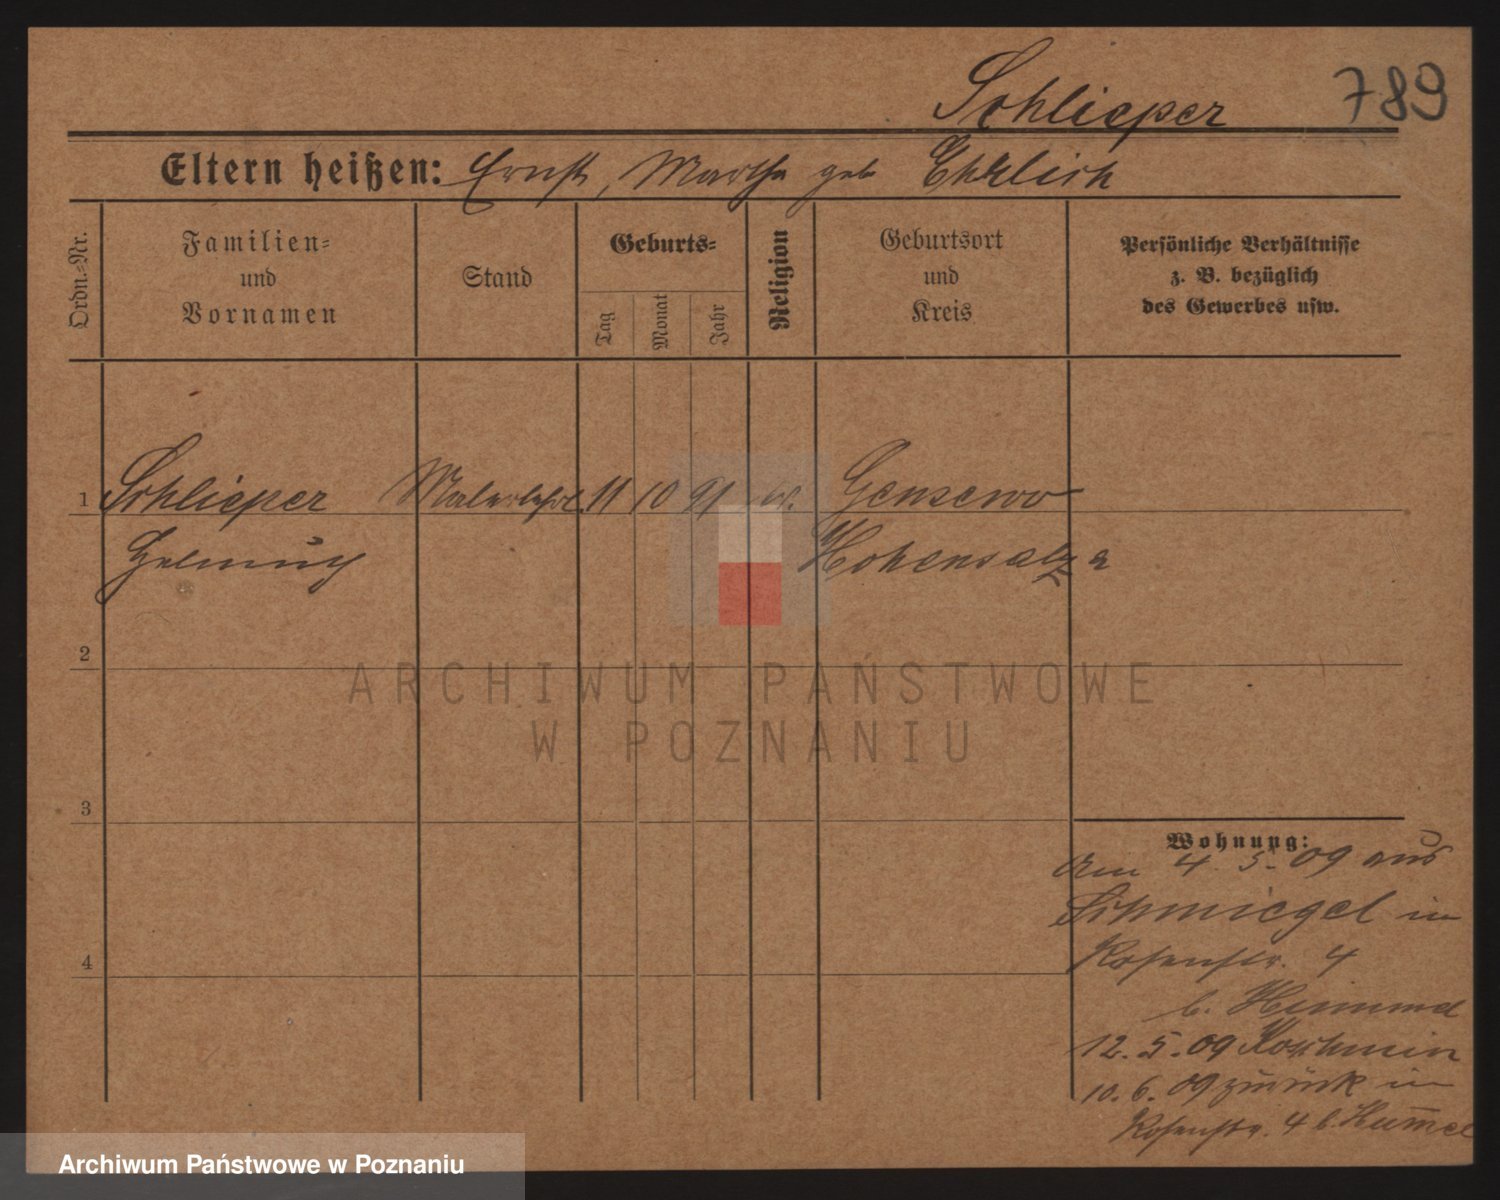 Schlieper 789
Eltern heißen: Ernst, Martha geb Ehrlich
Ordn.-Nr.
Familien-
und
Vornamen
Stand
Geburts-
Tag
Monat
Jahr
Religion
Geburtsort
und
Kreis
Persönliche Verhältnisse
z. B. bezüglich
des Gewerbes usw.
1 Schlieper Malerlehrl. 11 10 91 Gensewo
Helmuth Hohensalza
2
3
4
Wohnung:
Am 4. 5. 09 aus
Schmiegel in
Rosenstr. 4
b. Hummel
12. 5. 09 Koschmin
10. 6. 09 zurück in
Rosenstr. 4 b. Hum̅el
ARCHIWUM PAŃSTWOWE
W POZNANIU
Archiwum Państwowe w Poznaniu